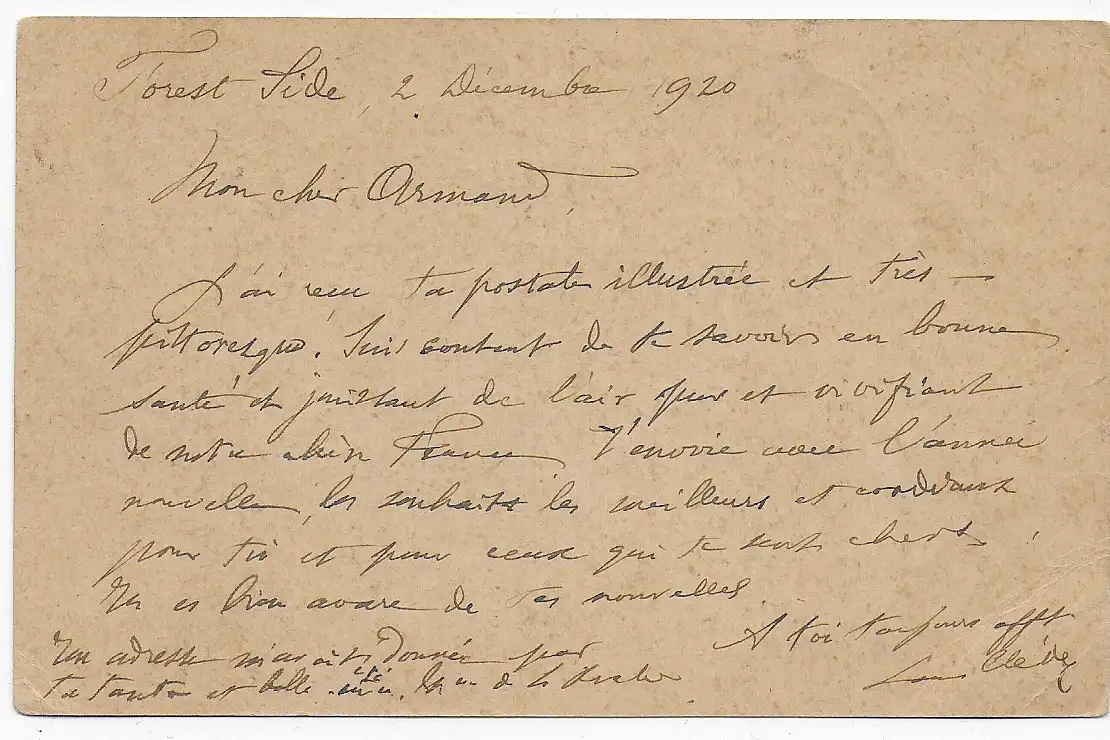 Forest Side, 2 Décembre 1920
Mon cher Armand,
J'ai reçu ta postale illustrée et très
pittoresque. Suis content de te savoir en bonne
santé et jouissant de l'air pur et vivifiant
de notre chère France. T'envoie avec l'année
nouvelle, les souhaits les meilleurs et cordiaux
pour toi et pour ceux qui te sont chers.
Tu es bien avare de tes nouvelles.
A toi toujours afft
Louis
Ton adresse m'avait été donnée par
ta tante et belle Mme de